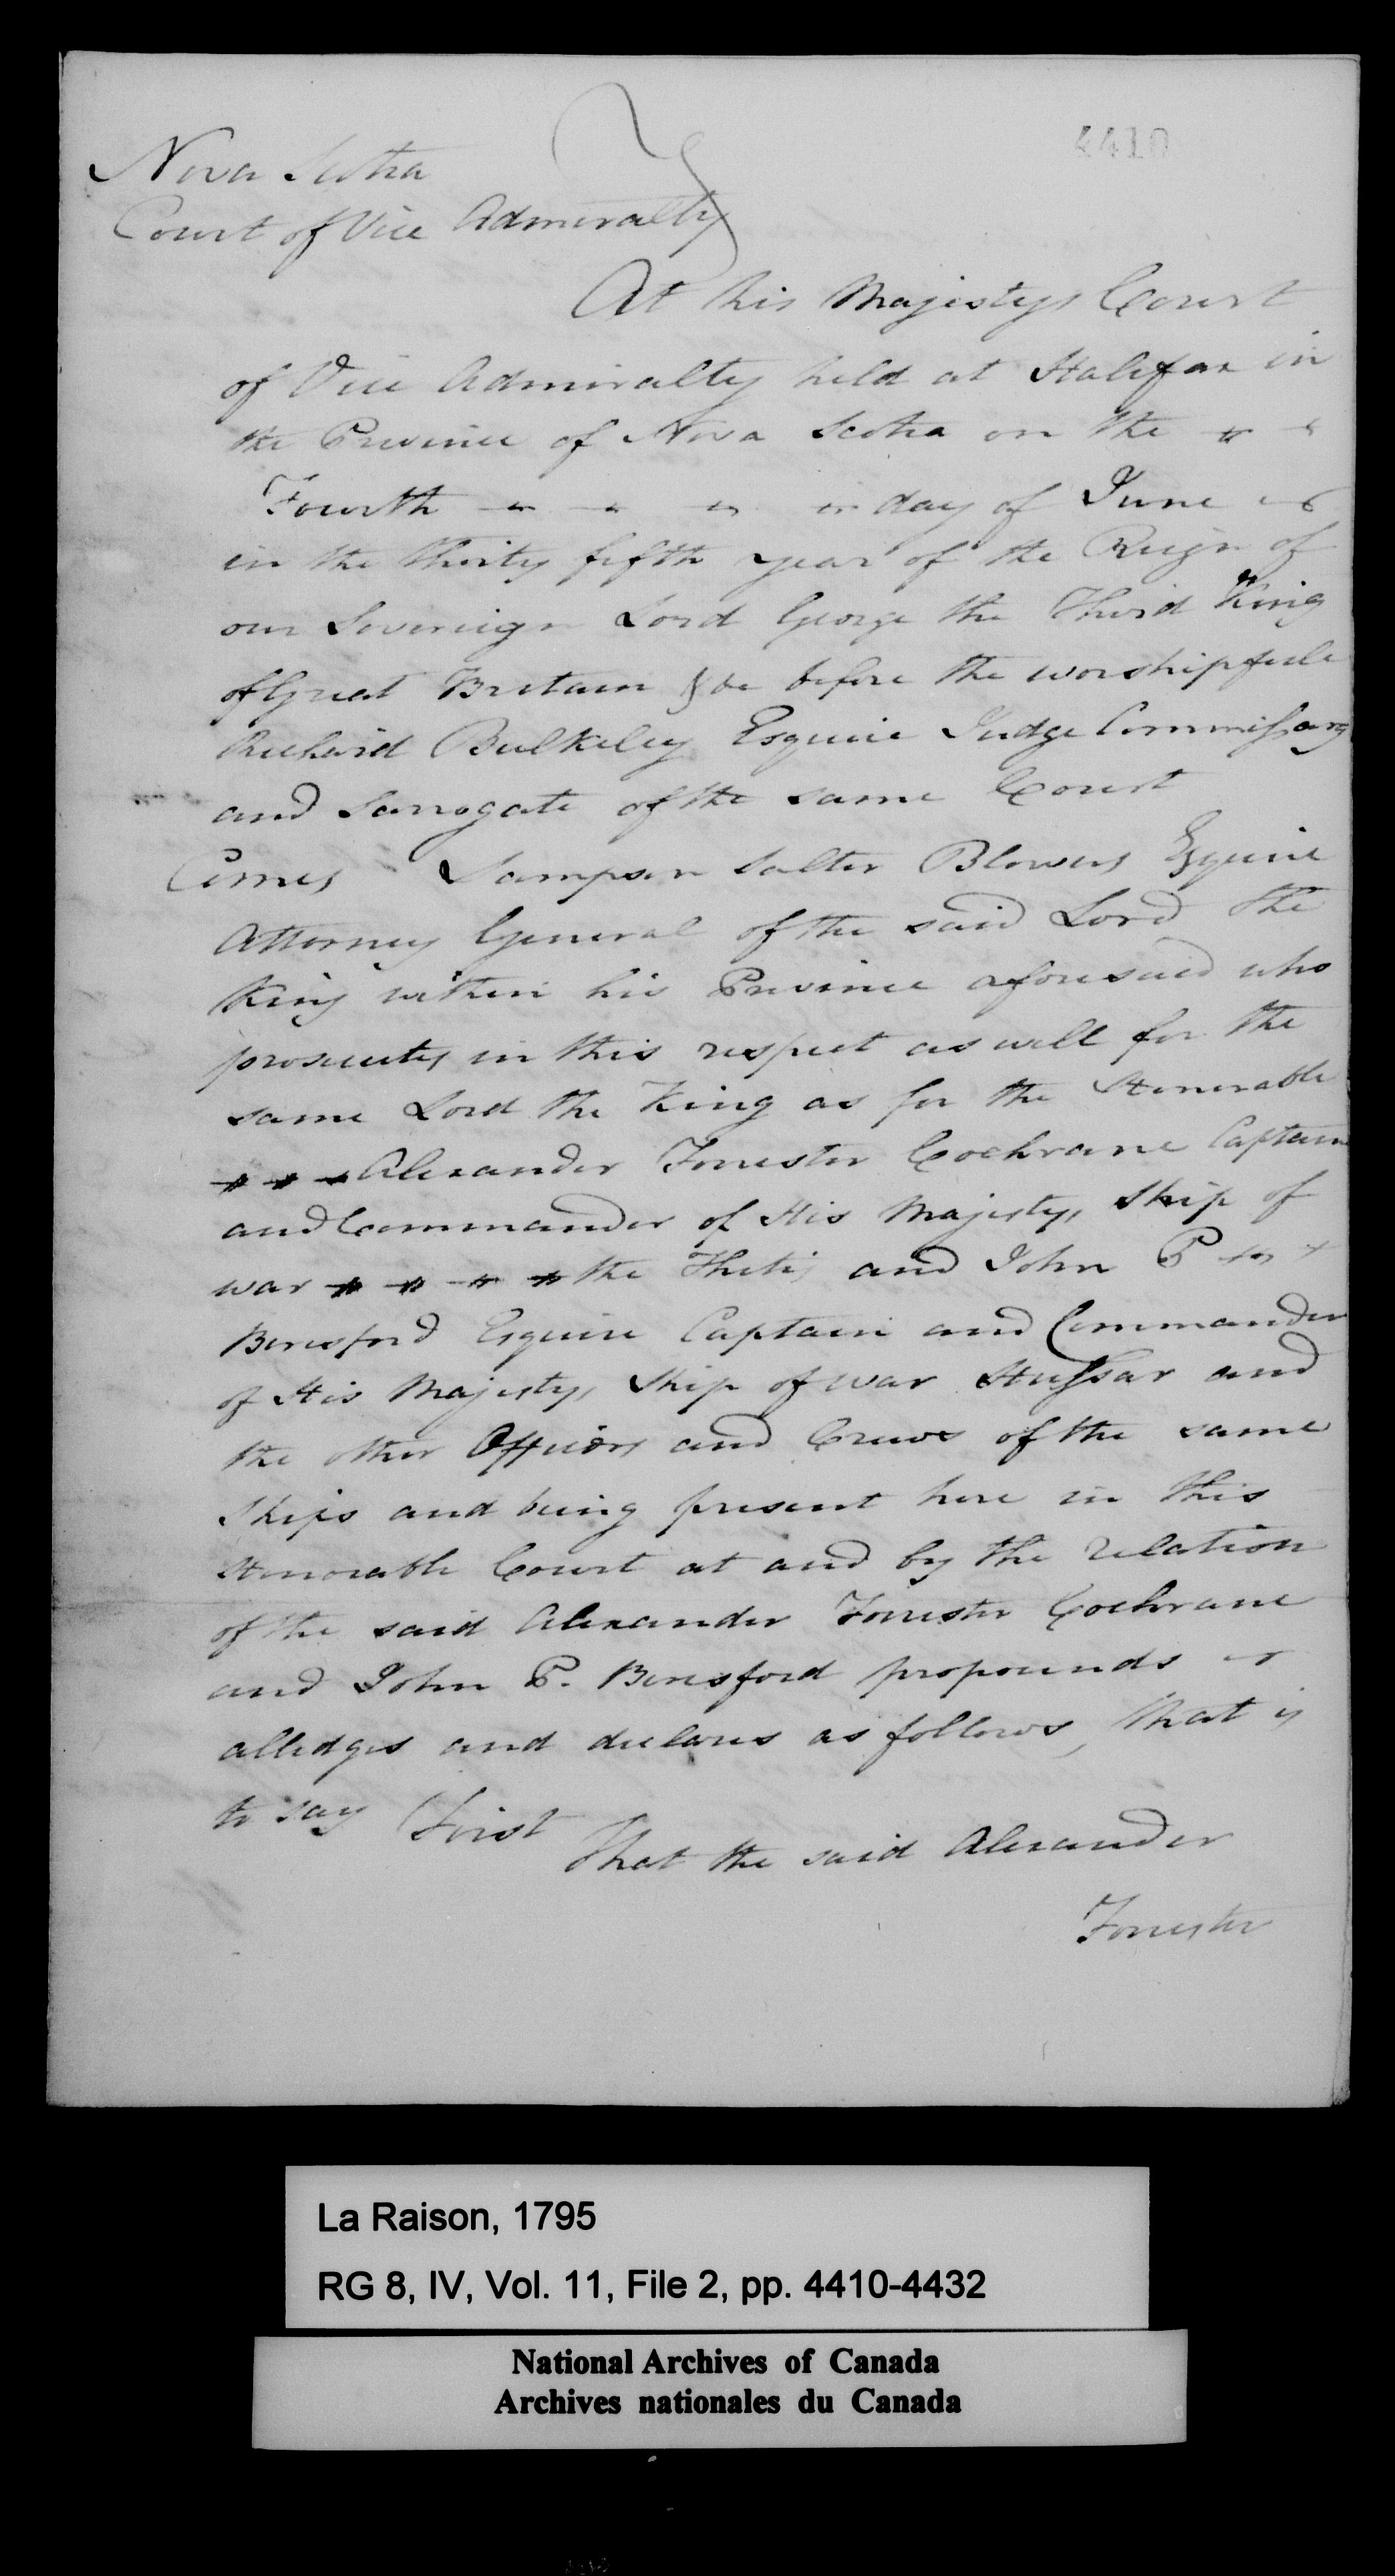 4410
Nova Scotia
Court of Vice Admiralty
At his Majestys Court
of Vice Admiralty held at Halifax in
the Province of Nova Scotia on the
Fourth day of June
in the thirty fifth year of the Reign of
our Sovereign Lord George the Third King
of Great Britain &ca before the worshipfull
Richard Bulkeley Esquire Judge Commissary
and Sarrogate of the same Court
Comes Sampson Salter Blowers Esquire
Attorney General of the said Lord the
King within his Province aforesaid who
prosecutes in this respect as well for the
same Lord the King as for the Honorable
Alexander Forrester Cochrane Captain
and Commander of His Majestys Ship of
war the Thetis and John P
Beresford Esquire Captain and Commander
of His Majestys Ship of war Hussar and
the other Officers and Crews of the same
Ships and being present here in this
Honorable Court at and by the relation
of the said Alexander Forrester Cochrane
and John P. Beresford propounds
alledges and declares as follows, that is
to say First
That the said Alexander
Forrester
La Raison, 1795
RG 8, IV, Vol. 11, File 2, pp. 4410-4432
National Archives of Canada
Archives nationales du Canada